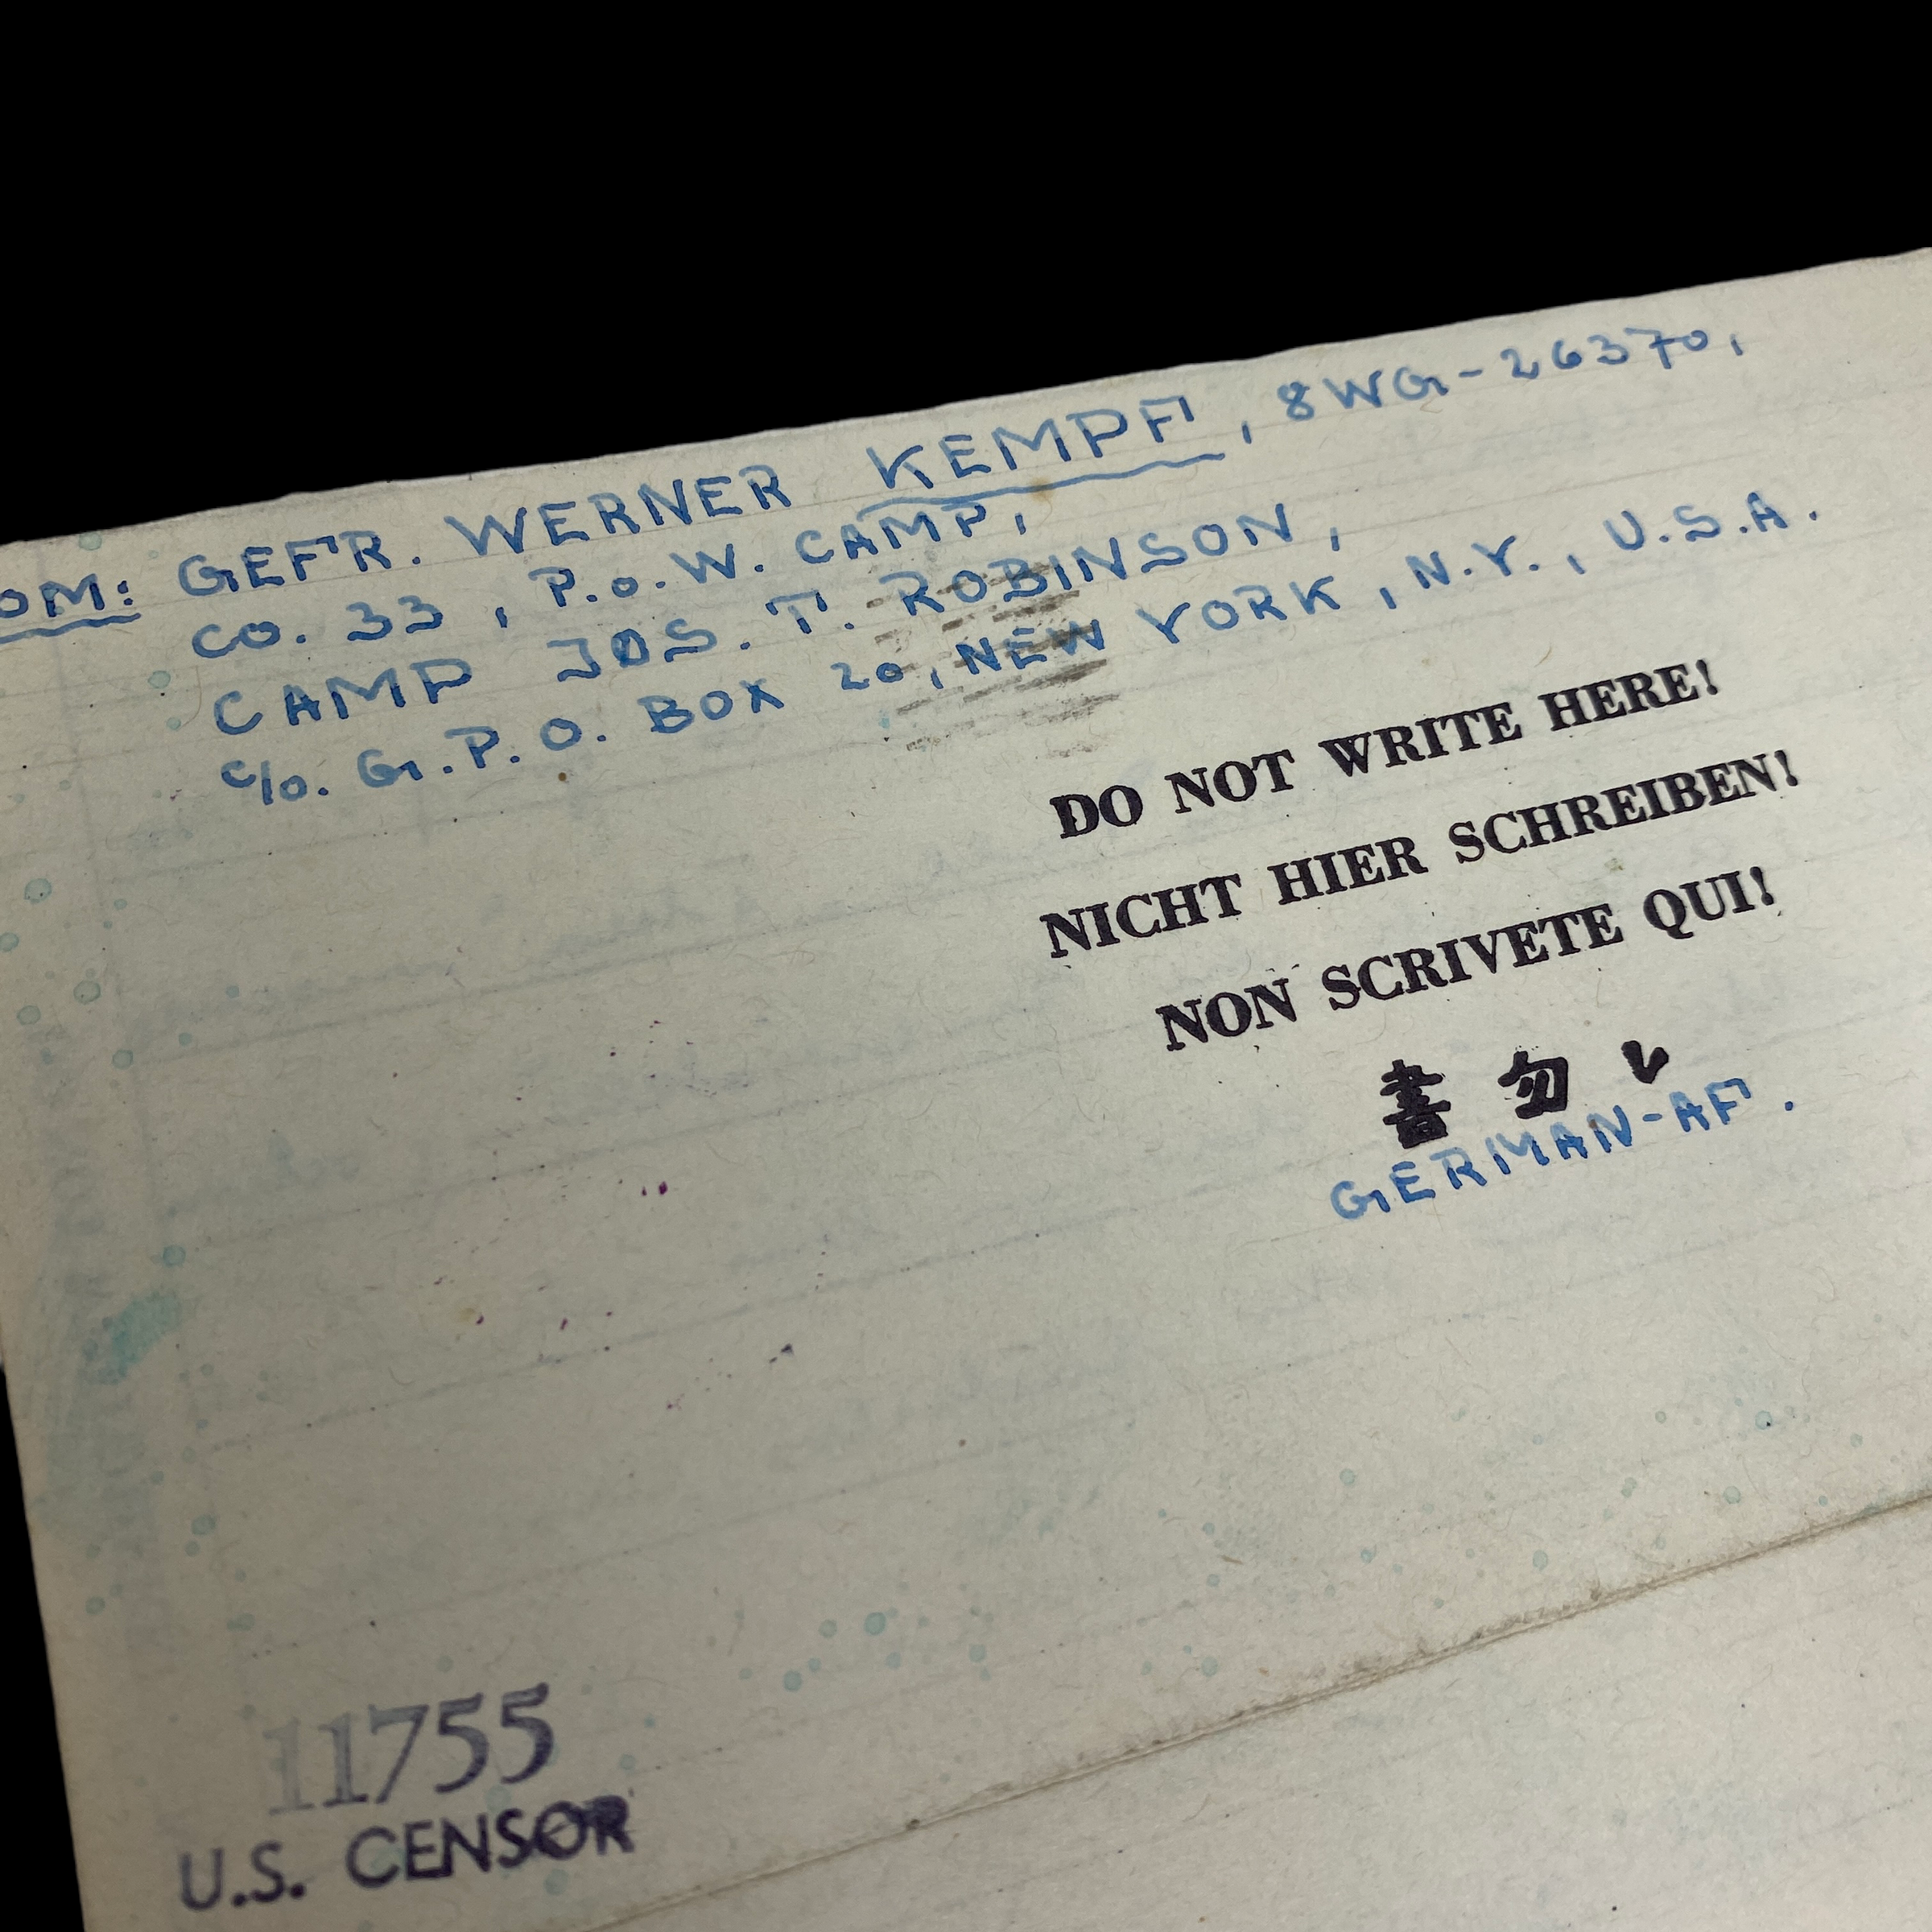 OM: GEFR. WERNER KEMPF, 8WG-26370,
CO. 33, P.o.W. CAMP,
CAMP JOS. T. ROBINSON,
c/o. G.P.O. BOX 20, NEW YORK, N.Y., U.S.A.
DO NOT WRITE HERE!
NICHT HIER SCHREIBEN!
NON SCRIVETE QUI!
書勿レ
GERMAN-AF.
11755
U.S. CENSOR